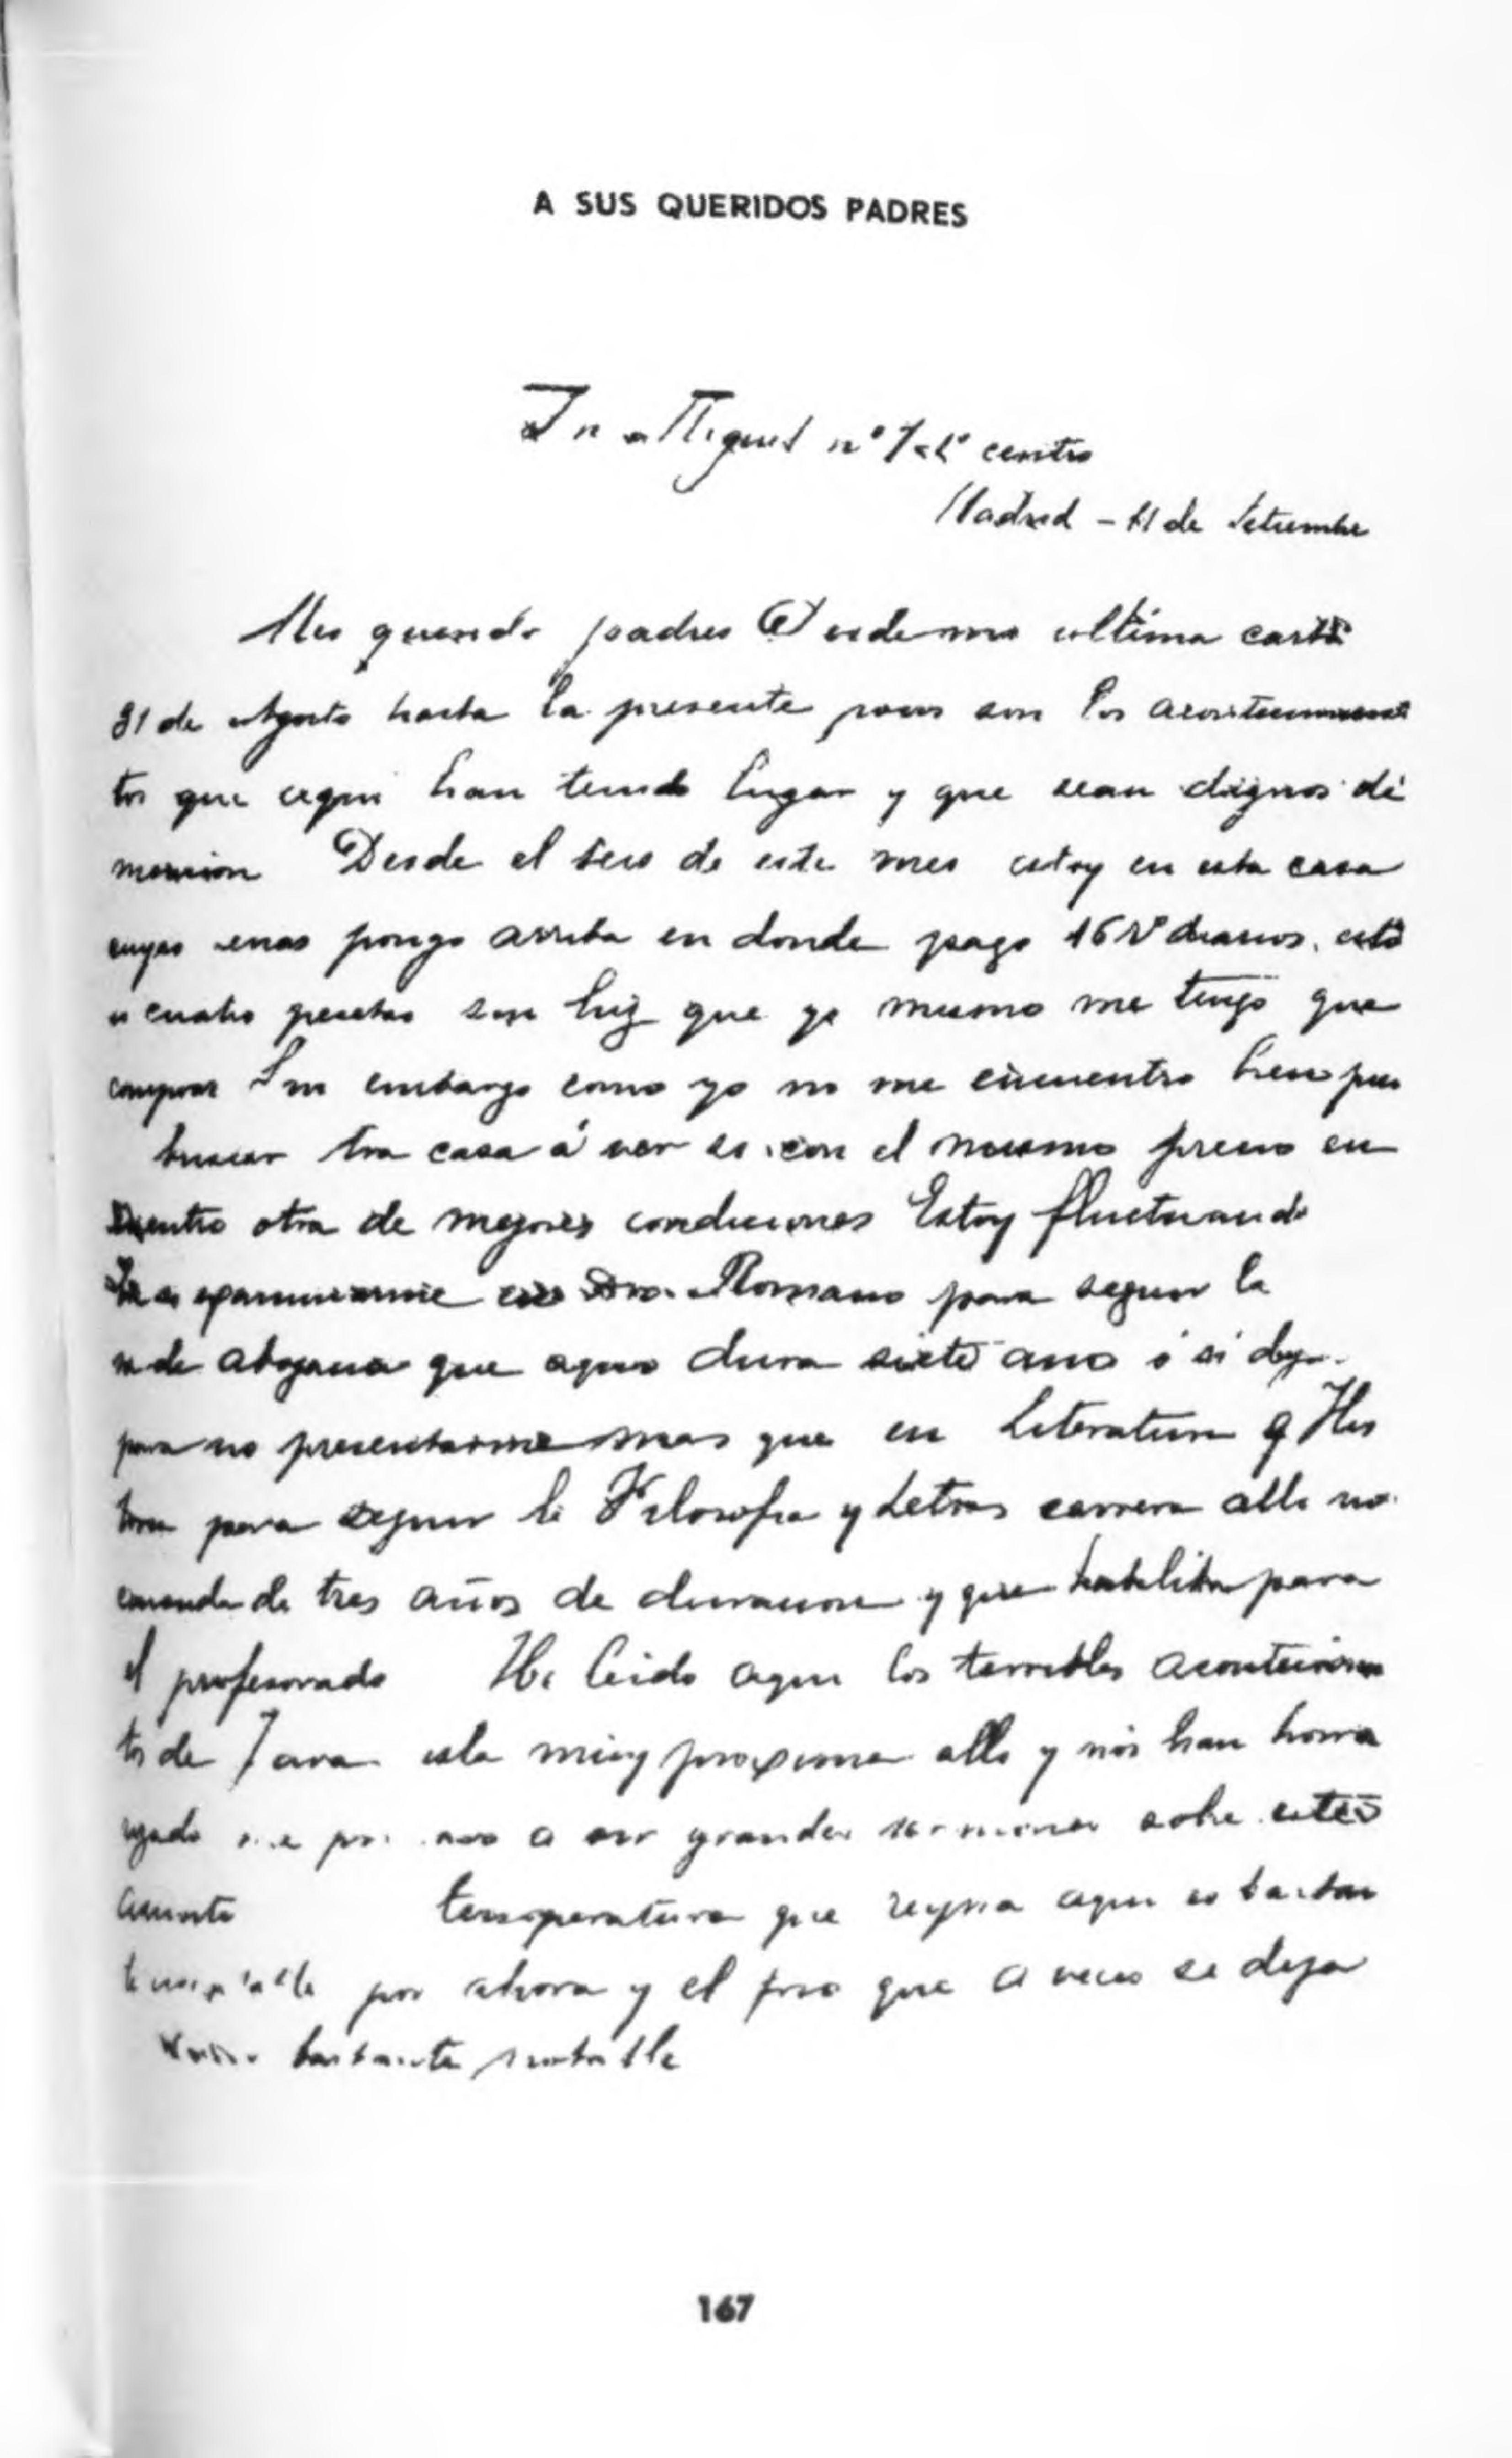 A SUS QUERIDOS PADRES
Sn Miguel nº 7 1º centro
Madrid - 11 de Setiembre
Mis queridos padres Desde mi ultima carta
31 de Agosto hasta la presente pocos son los acontecimien
tos que aqui han tenido lugar y que sean dignos de
mencion Desde el seis de este mes estoy en esta casa
cuyas señas pongo arriba en donde pago 16 rs diarios, esto
es cuatro pesetas sin luz que yo mismo me tengo que
comprar Sin embargo como yo no me encuentro bien
buscar otra casa á ver si con el mismo precio en
cuentro otra de mejores condiciones Estoy fluctuando
examinarme en Dro. Romano para seguir la
de abogacia que aquí dura siete años ó si dejo
para no presentarme mas que en Literatura y His
toria para seguir la Filosofia y Letras carrera alli no
conocida de tres años de duracion y que habilita para
el profesorado He leido aqui los terribles acontecimien
tos de Java isla muy proxima alli y nos han horro
a oir grandes sobre este
asunto temperatura que reyna aqui es bastan
te por ahora y el frio que a veces se deja
bastante
167